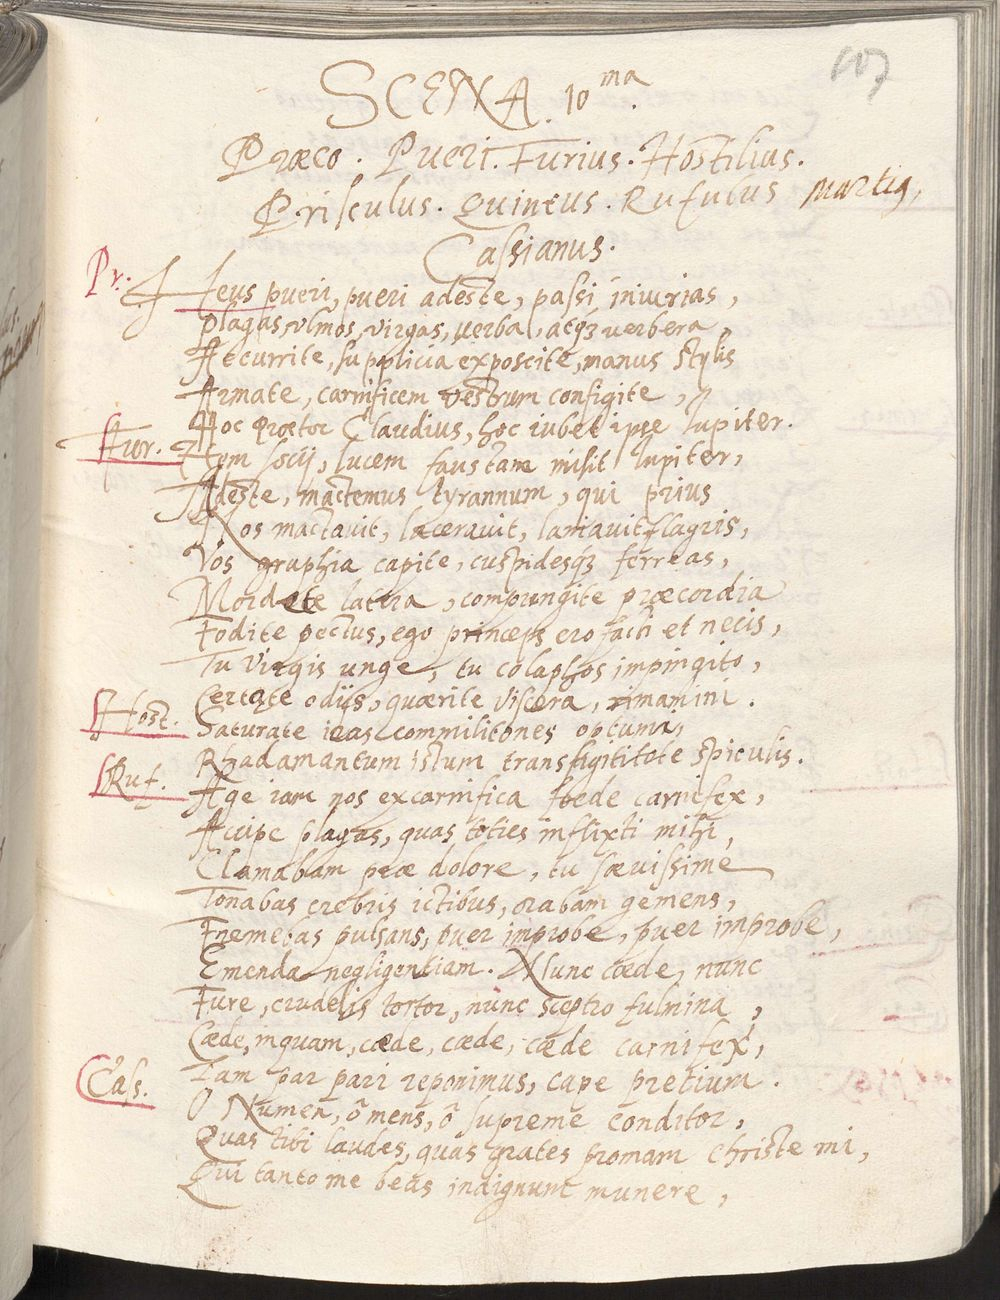 107
SCENA. 10ma.
Præco. Pueri. Furius. Hostilius.
Prisculus. Quintus. Rufulus Martia,
Cassianus.
Pr. Heus pueri, pueri adeste, passi iniurias,
Plagas, vlmos, virgas, verba, atqꝫ verbera,
Accurrite, supplicia exposcite, manus stylis
Armate, carnificem vestrum configite,
Hoc Prætor Claudius, hoc iubet ipse Iupiter.
Fur. Item socij, lucem faustam misit Iupiter,
Adeste, mactemus tyrannum, qui prius
Nos mactauit, lacerauit, laniauit flagris,
Vos graphia capite, cuspidesqꝫ ferreas,
Mordete latera, compungite præcordia
Fodite pectus, ego princeps ero facti et necis,
Tu virgis unge, tu colaphos impingito,
Certate odijs, quærite viscera, rimamini.
Host. Saturate iras commilitones optuma,
Rhadamantum istum transfigititote spiculis.
Ruf. Age iam nos excarnifica foede carnifex,
Accipe plagas, quas toties inflixti mihi,
Clamabam præ dolore, tu sæuissime
Tonabas crebris ictibus, orabam gemens,
Fremebas pulsans, puer improbe, puer improbe,
Emenda negligentiam. Nunc cæde, nunc
Fure, crudelis tortor, nunc sceptro fulmina,
Cæde, inquam, cæde, cæde, cæde carnifex,
Iam par pari reponimus, cape pretium.
Cas. O Numen, ô mens, ô supreme conditor,
Quas tibi laudes, quas grates promam Christe mi,
Qui tanto me beas indignum munere,